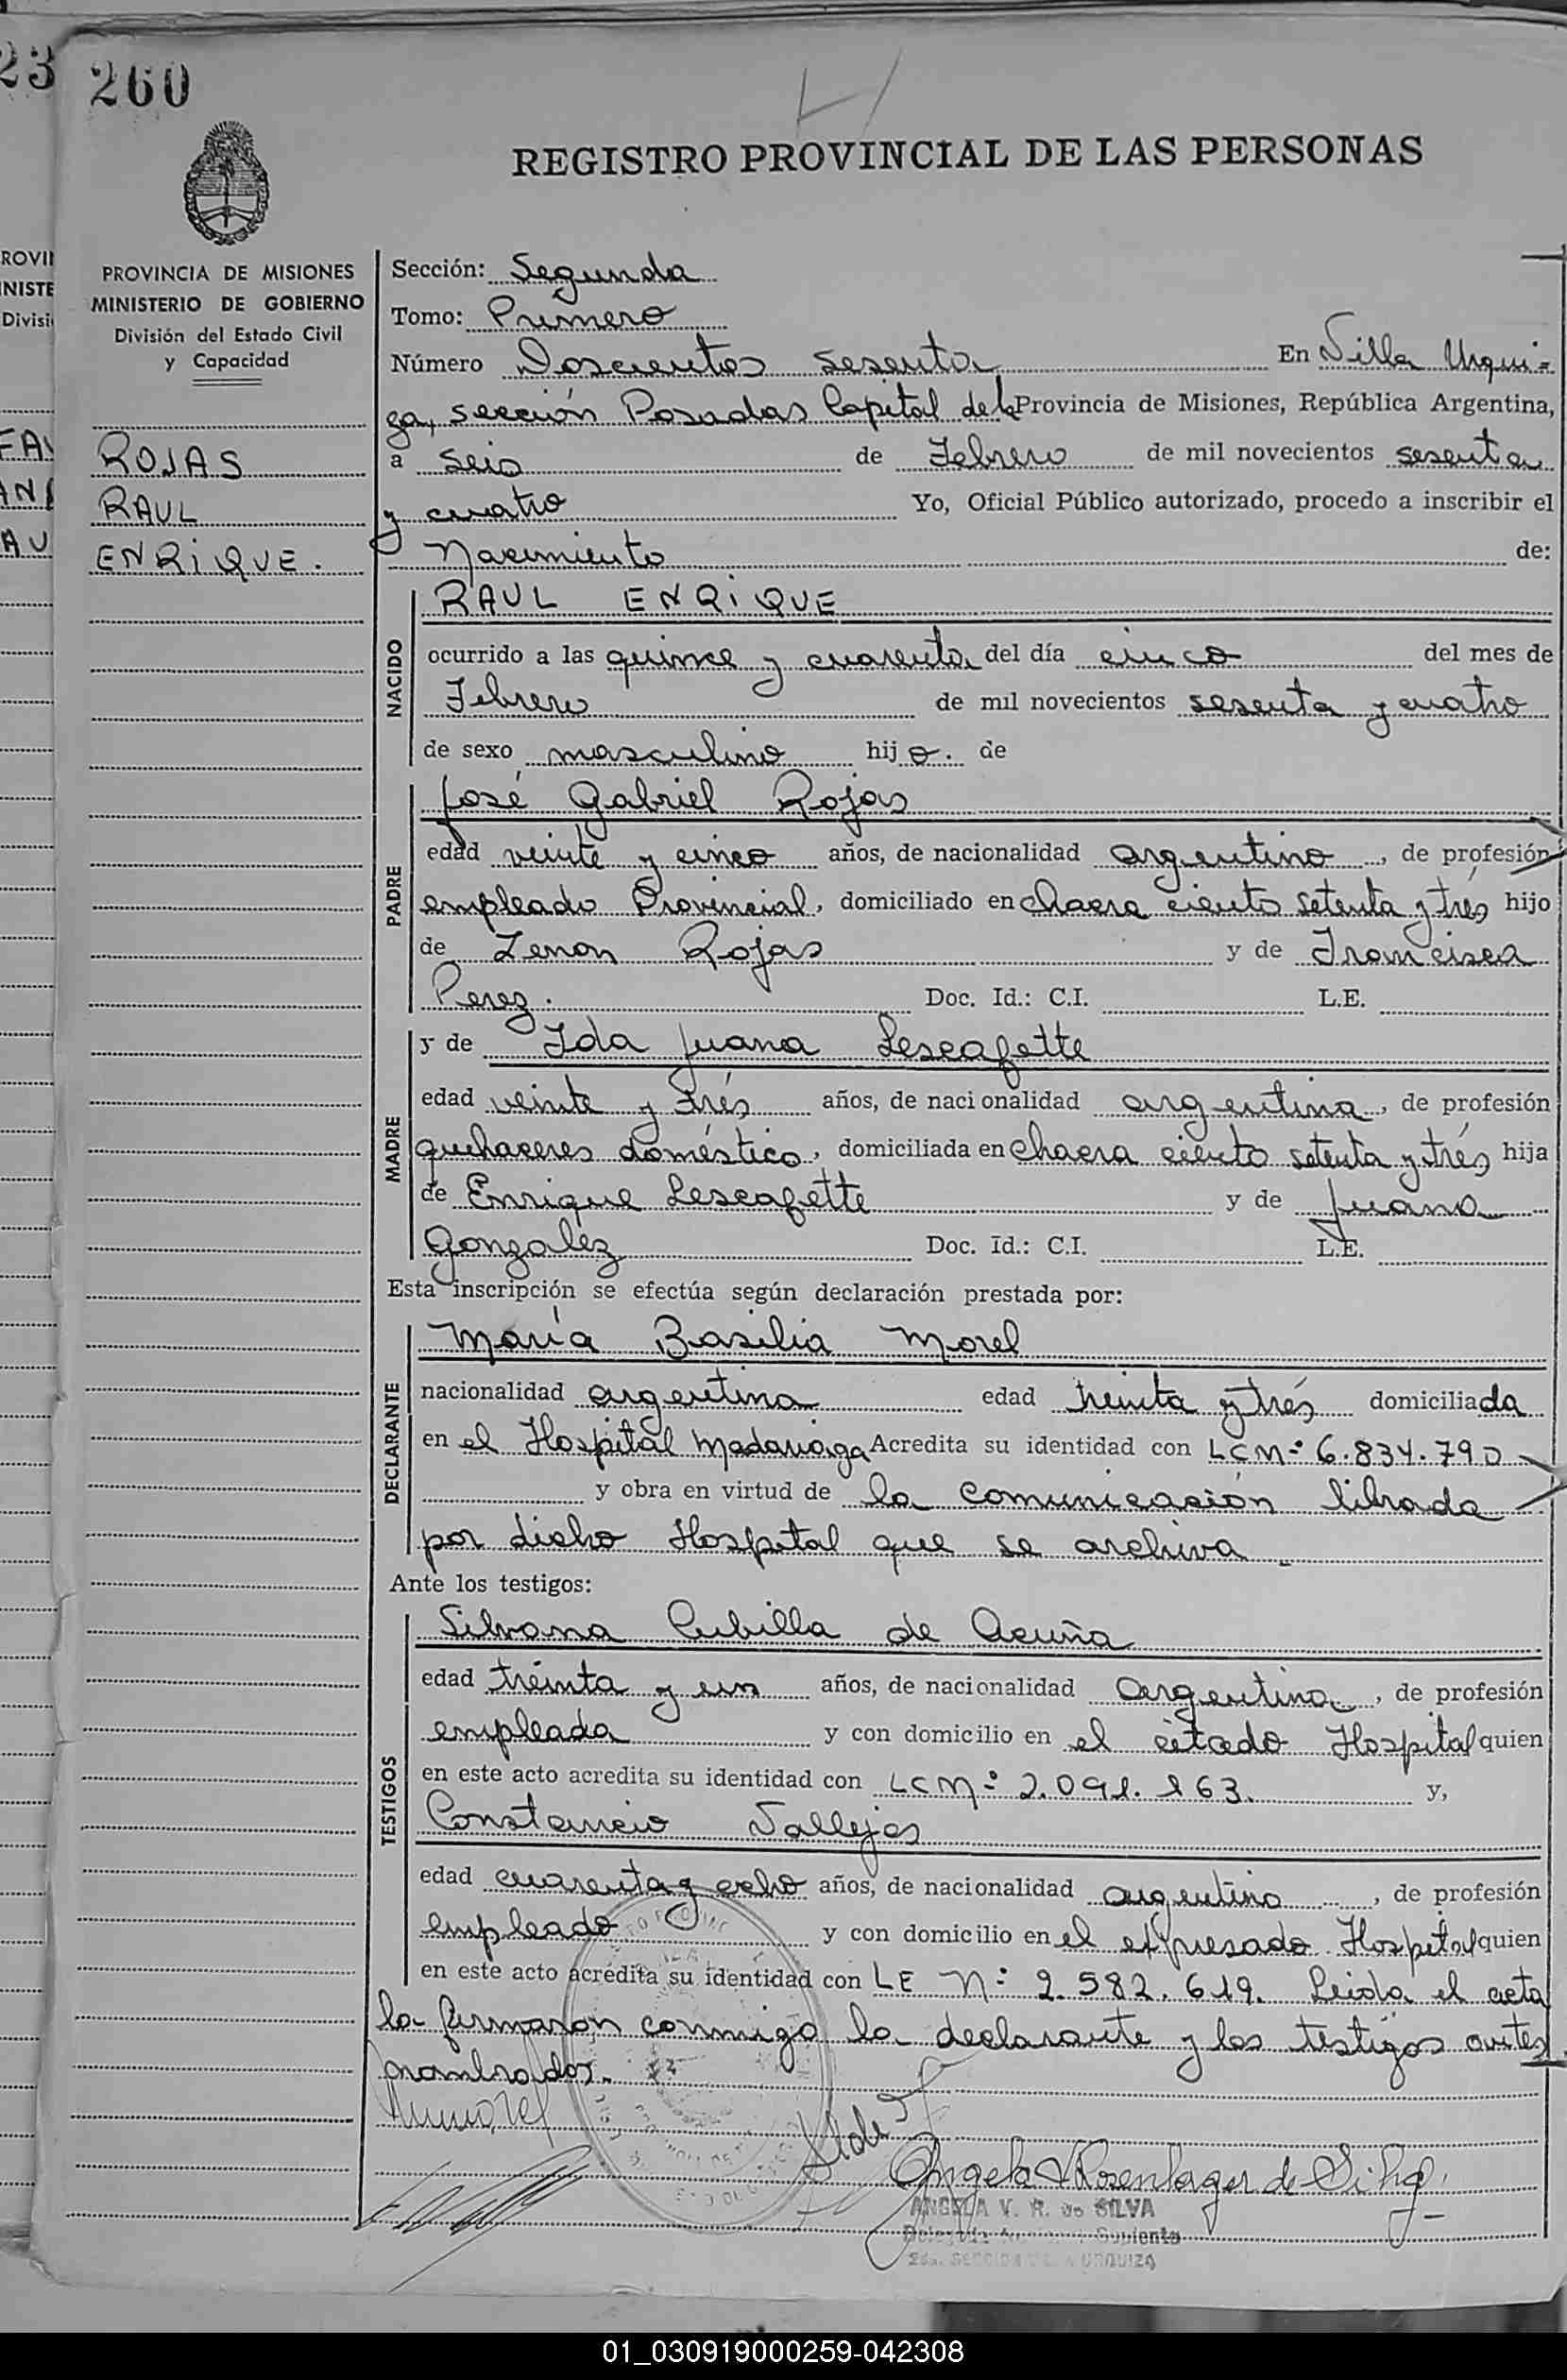 23 260
REGISTRO PROVINCIAL DE LAS PERSONAS
ROVI
NISTE
Divisi
PROVINCIA DE MISIONES
MINISTERIO DE GOBIERNO
División del Estado Civil
y Capacidad
ROJAS
RAUL
ENRIQUE.
Sección: Segunda
Tomo: Primero
Número Doscientos sesenta En Villa Urqui-
za, sección Posadas Capital de la Provincia de Misiones, República Argentina,
a seis de Febrero de mil novecientos sesenta
y cuatro Yo, Oficial Público autorizado, procedo a inscribir el
Nacimiento de:
NACIDO
RAUL ENRIQUE
ocurrido a las quince y cuarenta del día cinco del mes de
Febrero de mil novecientos sesenta y cuatro
de sexo masculino hijo. de
PADRE
José Gabriel Rojas
edad veinte y cinco años, de nacionalidad argentino, de profesión
empleado Provincial, domiciliado en chacra ciento setenta y trés hijo
de Zenon Rojas y de Francisca
Perez. Doc. Id.: C.I. L.E.
MADRE
y de Ida Juana Lescafette
edad veinte y trés años, de nacionalidad argentina, de profesión
quehaceres doméstico, domiciliada en chacra ciento setenta y trés hija
de Enrique Lescafette y de Juana
Gonzalez Doc. Id.: C.I. L.E.
Esta inscripción se efectúa según declaración prestada por:
DECLARANTE
María Basilia Morel
nacionalidad argentina edad treinta y trés domiciliada
en el Hospital Madariaga Acredita su identidad con LC Nº 6.834.790
y obra en virtud de la comunicasión librada
por dicho Hospital que se archiva
Ante los testigos:
TESTIGOS
Silvana Cubilla de Acuña
edad treinta y un años, de nacionalidad argentina, de profesión
empleada y con domicilio en el citado Hospital quien
en este acto acredita su identidad con LC Nº 2.091.163. y,
Constancio Vallejos
edad cuarenta y ocho años, de nacionalidad argentino, de profesión
empleado y con domicilio en el expresado Hospital quien
en este acto acredita su identidad con LE Nº 2.582.619. Leida el acta
la firmaron conmigo la declarante y los testigos antes
nombrados.
Angela V Rosenlager de Silva
ANGELA V. R. de SILVA
Suplente
2da. SECCION VILLA URQUIZA
01_030919000259-042308